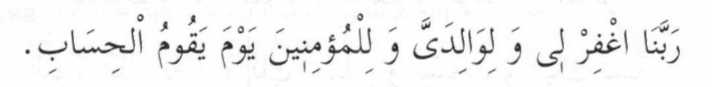 رَبَّنَا اغْفِرْ لٖى وَ لِوَالِدَىَّ وَ لِلْمُؤْمِنٖينَ يَوْمَ يَقُومُ اْلحِسَابِ.